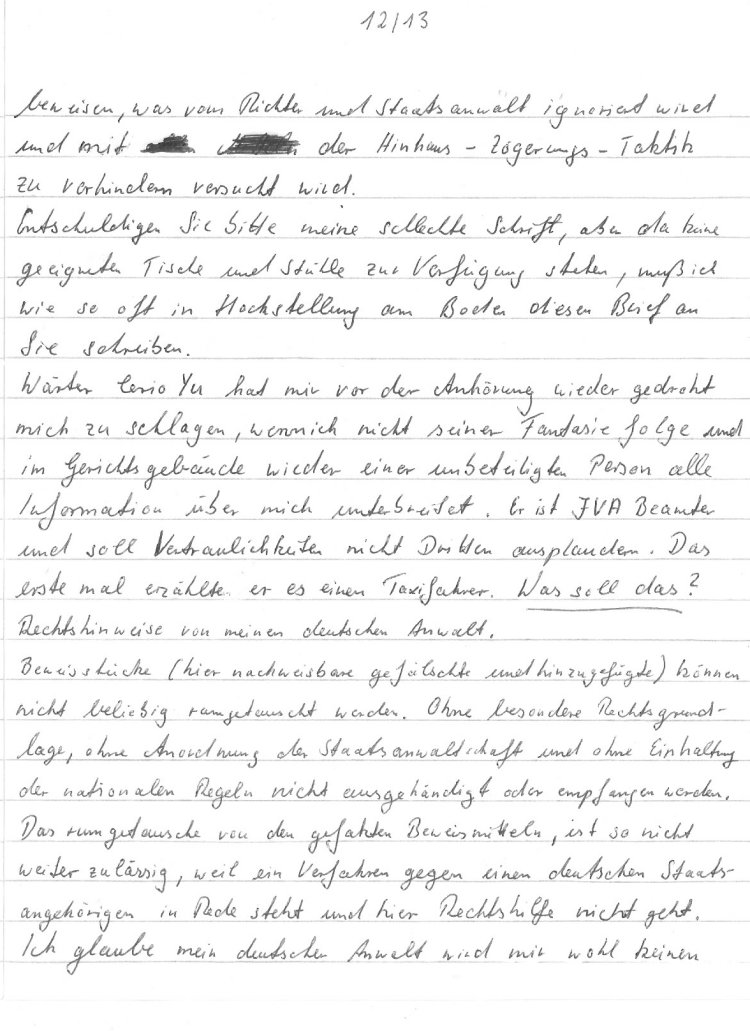 12/13
beweisen, was vom Richter und Staatsanwalt ignoriert wird
und mit der Hinhaus-Zögerungs-Taktik
zu verhindern versucht wird.
Entschuldigen Sie bitte meine schlechte Schrift, aber da keine
geeigneten Tische und Stühle zur Verfügung stehen, muß ich
wie so oft in Hockstellung am Boden diesen Brief an
Sie schreiben.
Wärter Cerio Yu hat mir vor der Anhörung wieder gedroht
mich zu schlagen, wenn ich nicht seiner Fantasie folge und
im Gerichtsgebäude wieder einer unbeteiligten Person alle
Information über mich unterbreitet. Er ist JVA Beamter
und soll Vertraulichkeiten nicht Dritten ausplaudern. Das
erste mal erzählte er es einen Taxifahrer. Was soll das?
Rechtshinweise von meinen deutschen Anwalt.
Beweisstücke (hier nachweisbare gefälschte und hinzugefügte) können
nicht beliebig rumgetauscht werden. Ohne besondere Rechtsgrund-
lage, ohne Anordnung der Staatsanwaltschaft und ohne Einhaltung
der nationalen Regeln nicht ausgehändigt oder empfangen werden.
Das rumgetausche von den gefakten Beweismitteln, ist so nicht
weiter zulässig, weil ein Verfahren gegen einen deutschen Staats-
angehörigen in Rede steht und hier Rechtshilfe nicht geht.
Ich glaube mein deutscher Anwalt wird mir wohl keinen